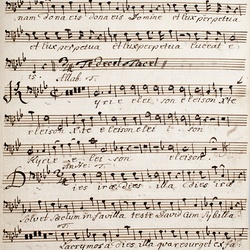 nam dona eis dona eis Domine et lux perpetua
et lux perpetua et lux perpetua luceat e
is. Te decet Tacet
Allab.
Kyrie elei son eleison Xte
eleison Xte eleison elei son
Kyrie elei son eleison
Dies irae dies illa dies irae
Solvet saeclum in favilla teste David cum Sybilla
Lacrymosa dies illa qua resurget ex fa